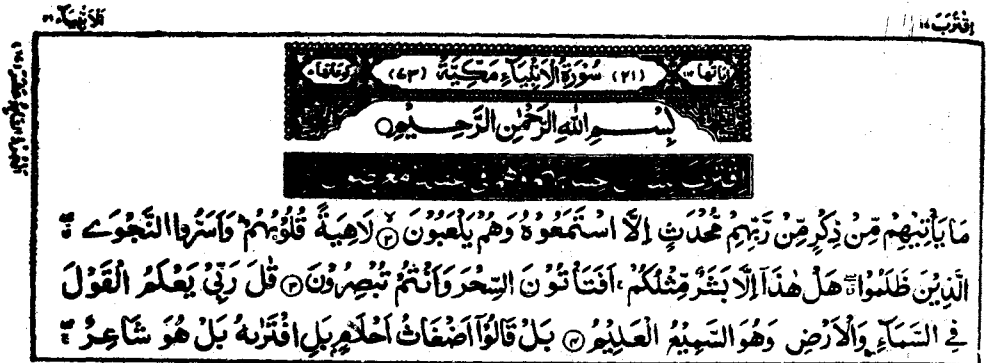 اِقْتَرَبَ ١٧
اَلْاَنْۢبِيَآء ٢١
اٰيَاتُهَا ١١٢ (٢١) سُوْرَةُ الْاَنْۢبِيَآءِ مَكِّيَّةٌ (٧٣) رُكُوْعَاتُهَا ٧
بِسْمِ اللهِ الرَّحْمٰنِ الرَّحِيْمِ
اِقْتَرَبَ لِلنَّاسِ حِسَابُهُمْ وَهُمْ فِيْ غَفْلَةٍ مُّعْرِضُوْنَ
مَا يَاْتِيْهِمْ مِّنْ ذِكْرٍ مِّنْ رَّبِّهِمْ مُّحْدَثٍ اِلَّا اسْتَمَعُوْهُ وَهُمْ يَلْعَبُوْنَ ۲ لَاهِيَةً قُلُوْبُهُمْ وَاَسَرُّوا النَّجْوَى
الَّذِيْنَ ظَلَمُوْا هَلْ هٰذَآ اِلَّا بَشَرٌ مِّثْلُكُمْ اَفَتَاْتُوْنَ السِّحْرَ وَاَنْتُمْ تُبْصِرُوْنَ ۳ قٰلَ رَبِّيْ يَعْلَمُ الْقَوْلَ
فِي السَّمَآءِ وَالْاَرْضِ وَهُوَ السَّمِيْعُ الْعَلِيْمُ ۴ بَلْ قَالُوْٓا اَضْغَاثُ اَحْلَامٍۭ بَلِ افْتَرٰىهُ بَلْ هُوَ شَاعِرٌ